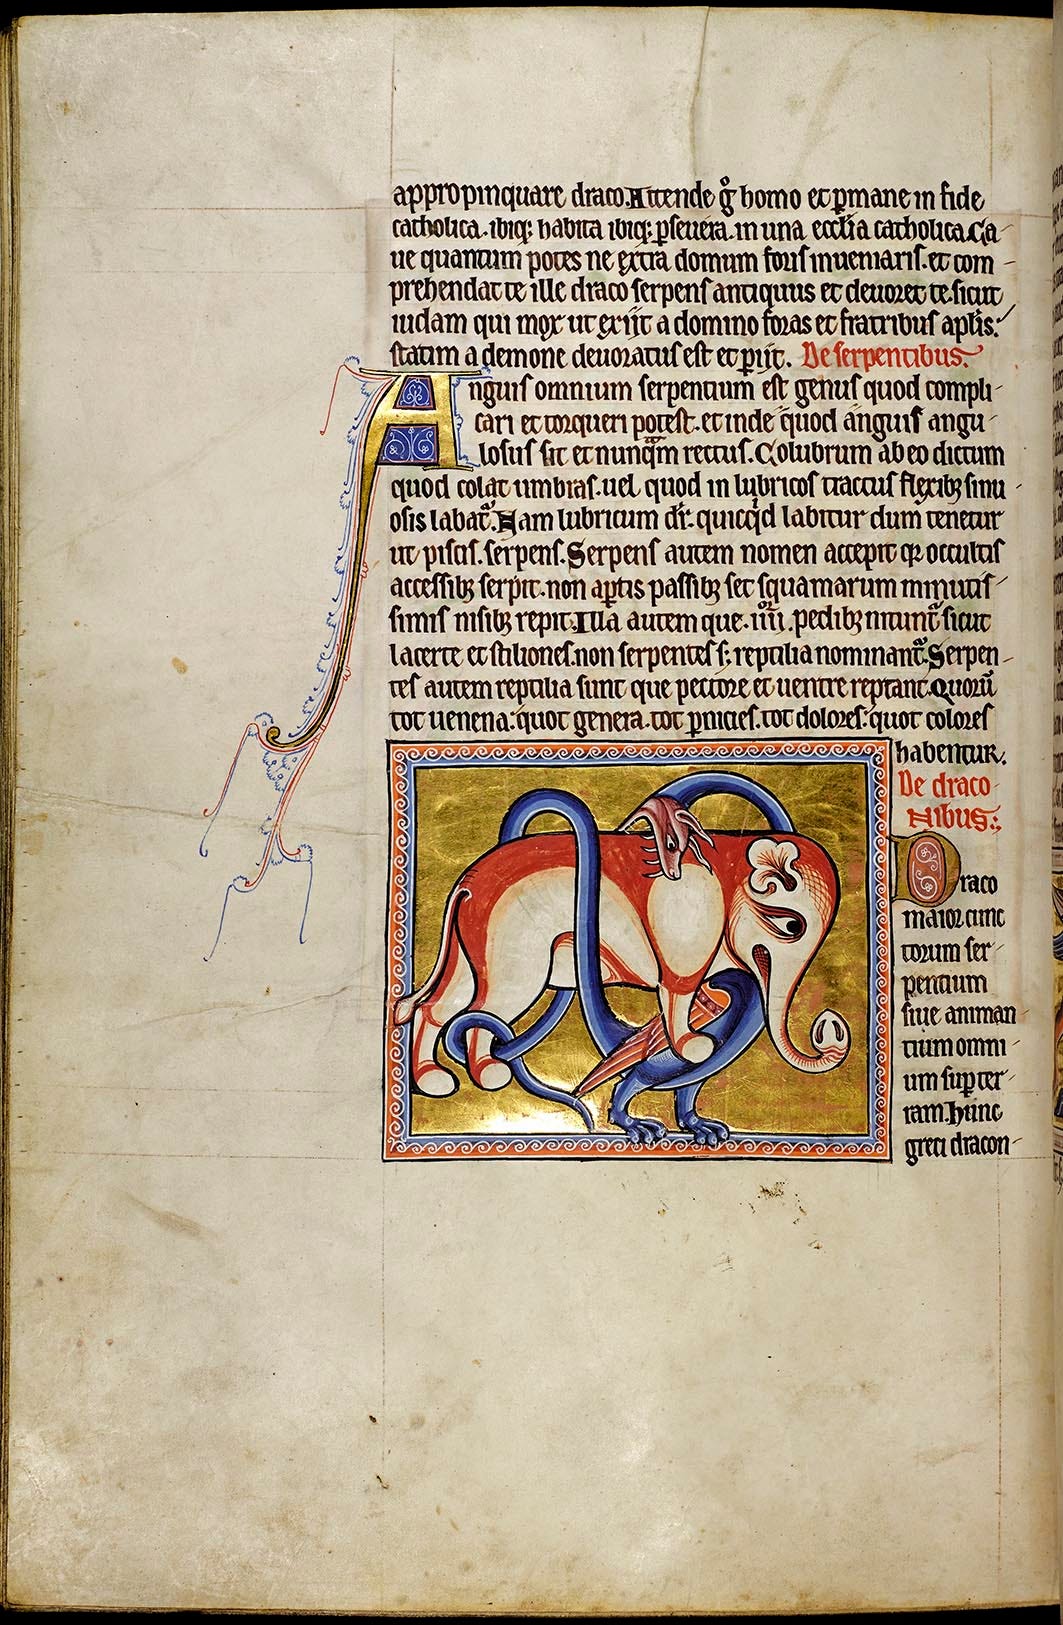 appropinquare draco. Attende g̊ homo et p̱mane in fide
catholica. ibiq; habita ibiq; p̱seuera. in una ecclı̄a catholica. Ca-
ue quantum potes ne extra domum foris inueniaris. et com-
prehendat te ille draco serpens antiquus et deuoret te. sicut
iudam qui mox ut exiit a domino foras et fratribus aplı̄s.
statim a demone deuoratus est et p̱iit. De serpentibus.
Anguis omnium serpentium est genus quod compli-
cari et torqueri potest. et inde quod anguis angu-
losus sit et nunqᵃm rectus. Colubrum ab eo dictum
quod colat umbras. uel quod in lubricos tractus flexibꝫ sinu-
osis labat᷑. Nam lubricum dr̄. quicqͥd labitur dum tenetur
ut piscis. serpens. Serpens autem nomen accepit qꝛ occultis
accessibꝫ serpit. non ap̱tis passibꝫ set squamarum minutis-
simis nisibꝫ repit. Illa autem que .iiii. pedibꝫ nitunt᷑ sicut
lacerte et stiliones. non serpentes s; reptilia nominant᷑. Serpen-
tes autem reptilia sunt que pectore et uentre reptant. Quorū
tot uenena: quot genera. tot p̱nicies. tot dolores: quot colores
habentur.
De draco-
nibus:
Draco
maior cunc
torum ser-
pentium
siue animan-
tium omni-
um sup̱ ter-
ram. Hunc
greci dracon-